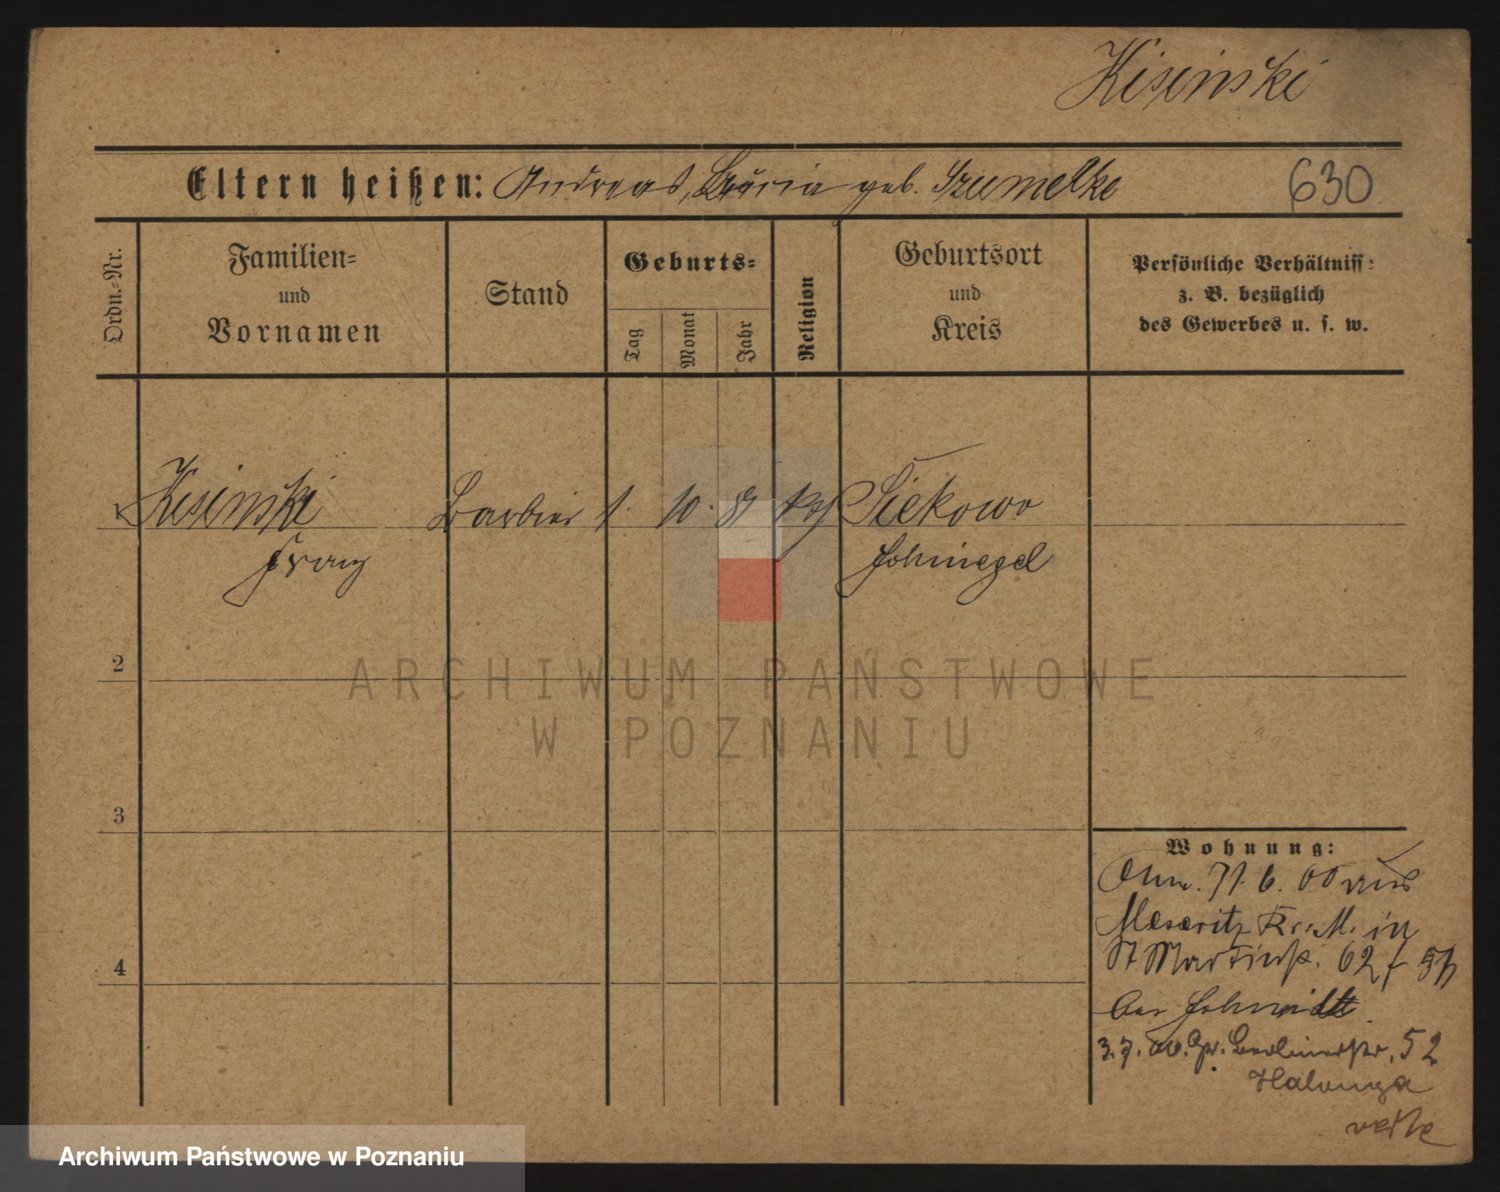 Kisinski
Eltern heißen: Andreas, Maria geb. Szumelke
630
Ordn.-Nr.
Familien-
und
Vornamen
Stand
Geburts-
Tag
Monat
Jahr
Religion
Geburtsort
und
Kreis
Persönliche Verhältniss:
z. B. bezüglich
des Gewerbes u. s. w.
1 Kisinski Barbier 1. 10. 81 kg Siekowo
Franz Schmiegel
2
ARCHIWUM PAŃSTWOWE
W POZNANIU
3
Wohnung:
6. 00 aus
Meseritz Kr. M. in
St Martinstr. 62
bei Schmidt
3. 7. Gr. Berlinerstr. 52
4
Archiwum Państwowe w Poznaniu